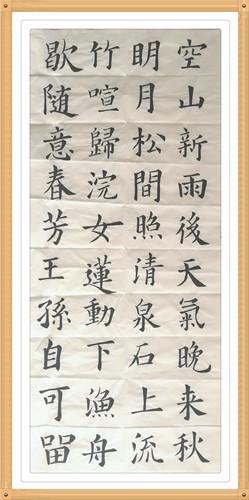 空山新雨後天氣晚来秋
明月松間照清泉石上流
竹喧歸浣女蓮動下漁舟
歇隨意春芳王孫自可留